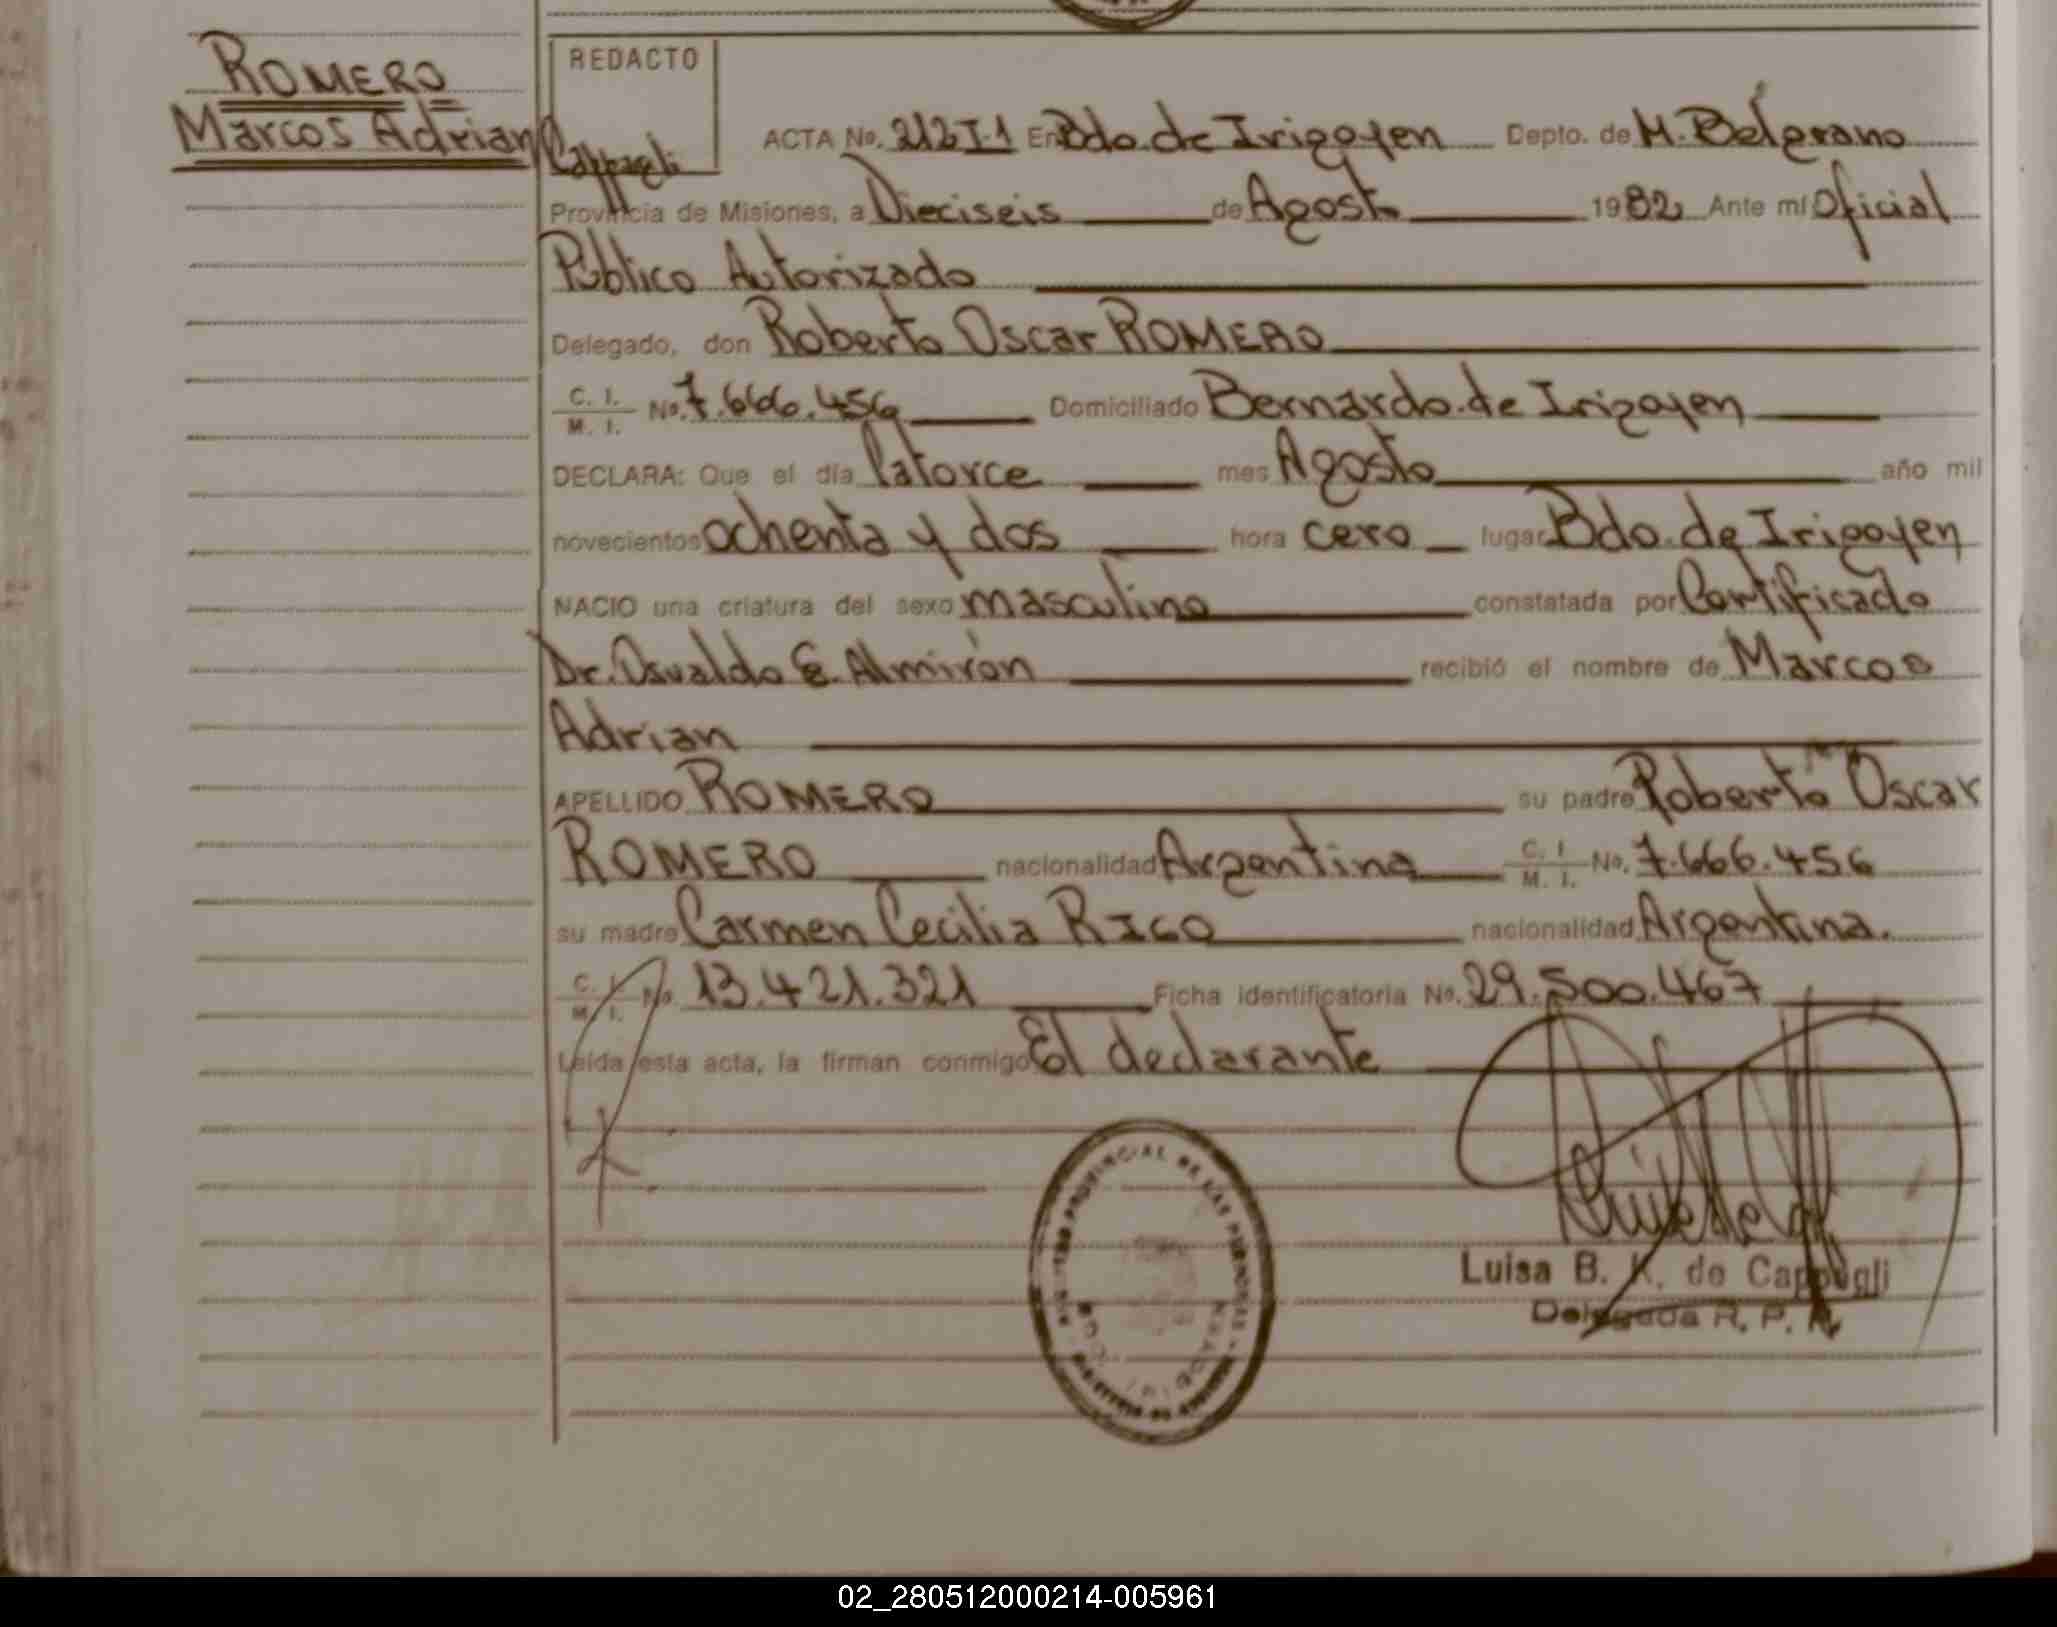 ROMERO
Marcos Adrian
REDACTO
Cappagli
ACTA No. 212 T-1 En Bdo. de Irigoyen Depto. de M. Belgrano
Provincia de Misiones, a Dieciseis de Agosto 1982 Ante mí Oficial
Público Autorizado
Delegado, don Roberto Oscar ROMERO
C. I. / M. I. No. 7.666.456 Domiciliado Bernardo de Irigoyen
DECLARA: Que el día Catorce mes Agosto año mil
novecientos ochenta y dos hora cero lugar Bdo. de Irigoyen
NACIO una criatura del sexo masculino constatada por Certificado
Dr. Osvaldo E. Almirón recibió el nombre de Marcos
Adrian
APELLIDO ROMERO su padre Roberto Oscar
ROMERO nacionalidad Argentina C. I. / M. I. No. 7.666.456
su madre Carmen Cecilia RICO nacionalidad Argentina.
C. I. / M. I. No. 13.421.321 Ficha identificatoria No. 29.500.467
Leída esta acta, la firman conmigo El declarante
PROVINCIAL DE LAS PERSONAS
Luisa B. K. de Cappagli
Delegada R. P. P.
02_280512000214-005961